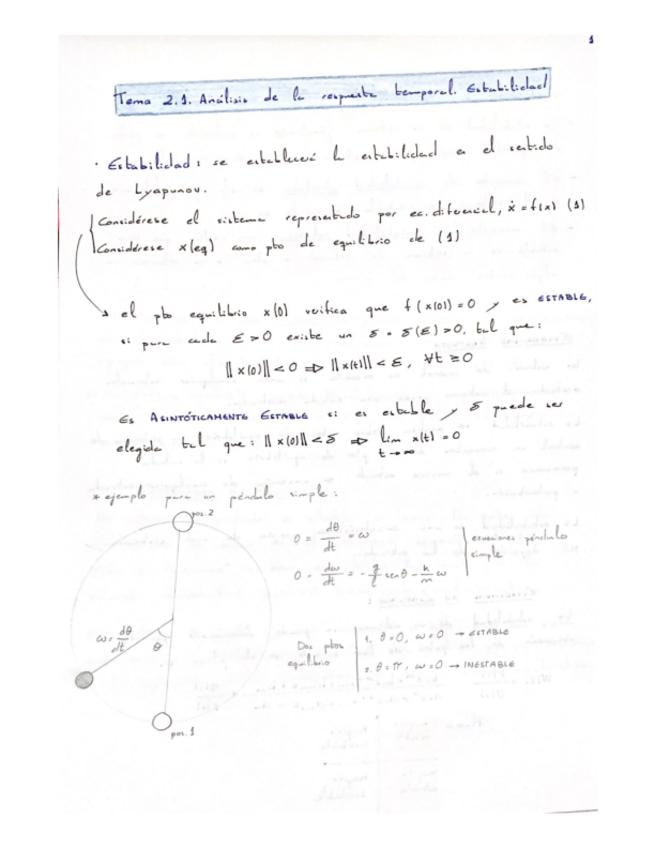 1
Tema 2.1. Análisis de la respuesta temporal. Estabilidad
· Estabilidad: se establecerá la estabilidad en el sentido
de Lyapunov.
Considérese el sistema representado por ec. diferencial, ẋ = f(x) (1)
Considérese x(eq) como pto de equilibrio de (1)
el pto equilibrio x(0) verifica que f(x(0)) = 0 y es ESTABLE,
si para cada ε > 0 existe un δ = δ(ε) > 0, tal que:
||x(0)|| < 0 ⇒ ||x(t)|| < ε, ∀t ≥ 0
Es ASINTÓTICAMENTE ESTABLE si es estable y δ puede ser
elegida tal que: ||x(0)|| < δ ⇒ lim x(t) = 0
t→∞
* ejemplo para un péndulo simple:
pos. 2
0 = dθ/dt = ω
0 = dω/dt = - g/l sen θ - k/m ω
ecuaciones péndulo
simple
ω = dθ/dt
θ
Dos ptos
equilibrio
1. θ = 0, ω = 0 → ESTABLE
2. θ = π, ω = 0 → INESTABLE
pos. 1